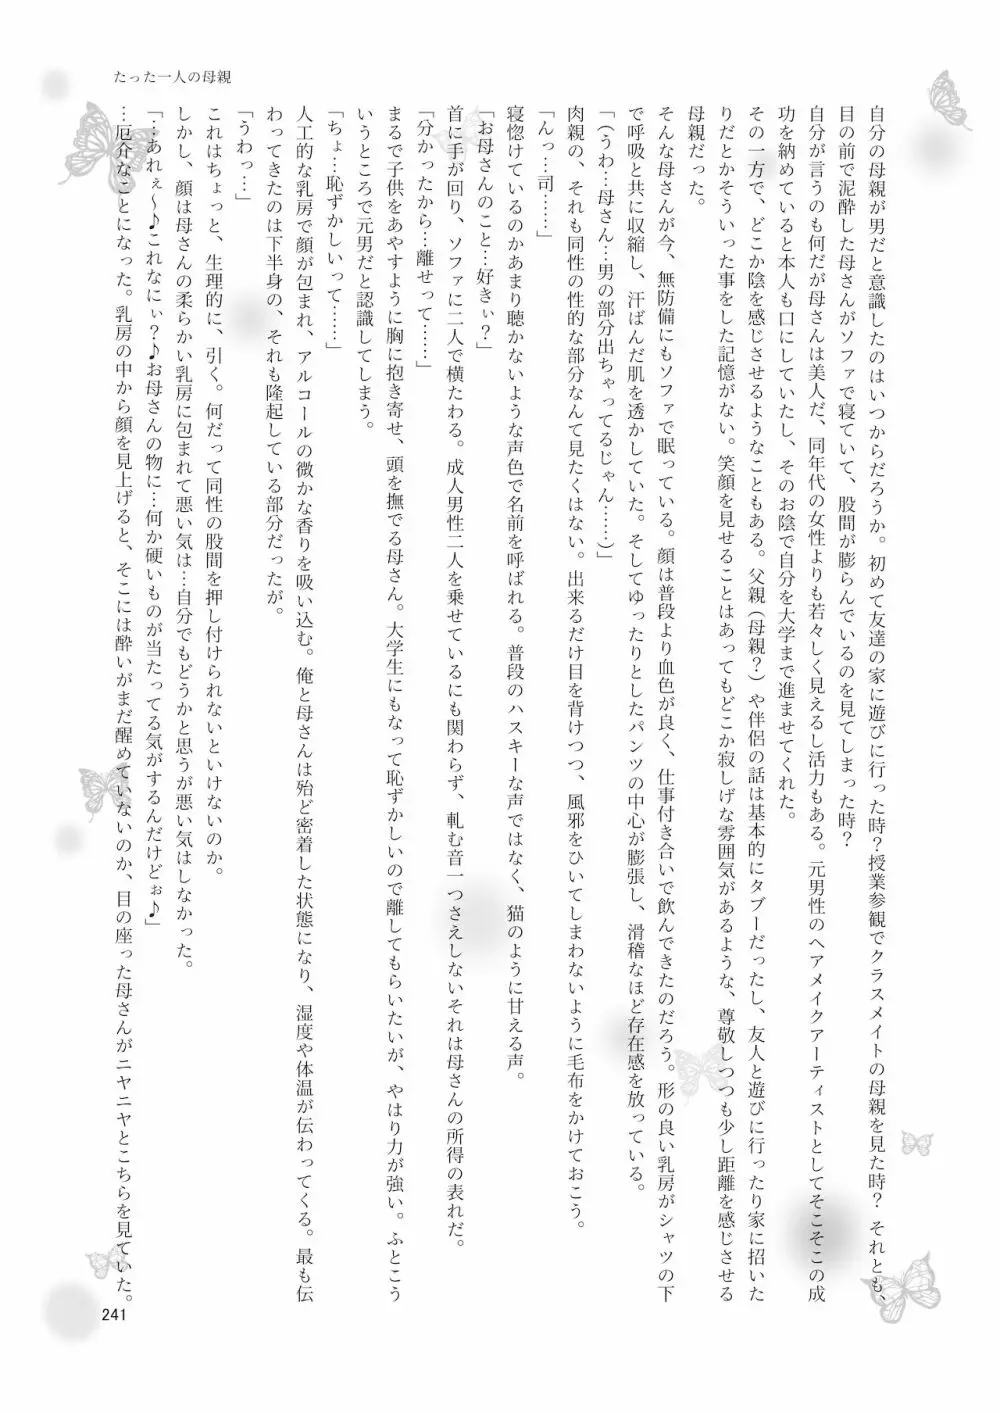 たった一人の母親
自分の母親が男だと意識したのはいつからだろうか。初めて友達の家に遊びに行った時？授業参観でクラスメイトの母親を見た時？ それとも、
目の前で泥酔した母さんがソファで寝ていて、股間が膨らんでいるのを見てしまった時？
自分が言うのも何だが母さんは美人だ、同年代の女性よりも若々しく見えるし活力もある。元男性のヘアメイクアーティストとしてそこそこの成
功を納めていると本人も口にしていたし、そのお陰で自分を大学まで進ませてくれた。
その一方で、どこか陰を感じさせるようなこともある。父親（母親？）や伴侶の話は基本的にタブーだったし、友人と遊びに行ったり家に招いた
りだとかそういった事をした記憶がない。笑顔を見せることはあってもどこか寂しげな雰囲気があるような、尊敬しつつも少し距離を感じさせる
母親だった。
そんな母さんが今、無防備にもソファで眠っている。顔は普段より血色が良く、仕事付き合いで飲んできたのだろう。形の良い乳房がシャツの下
で呼吸と共に収縮し、汗ばんだ肌を透かしていた。そしてゆったりとしたパンツの中心が膨張し、滑稽なほど存在感を放っている。
「（うわ…母さん…男の部分出ちゃってるじゃん……）」
肉親の、それも同性の性的な部分なんて見たくはない。出来るだけ目を背けつつ、風邪をひいてしまわないように毛布をかけておこう。
「んっ…司……」
寝惚けているのかあまり聴かないような声色で名前を呼ばれる。普段のハスキーな声ではなく、猫のように甘える声。
「お母さんのこと…好きぃ？」
首に手が回り、ソファに二人で横たわる。成人男性二人を乗せているにも関わらず、軋む音一つさえしないそれは母さんの所得の表れだ。
「分かったから…離せって……」
まるで子供をあやすように胸に抱き寄せ、頭を撫でる母さん。大学生にもなって恥ずかしいので離してもらいたいが、やはり力が強い。ふとこう
いうところで元男だと認識してしまう。
「ちょ…恥ずかしいって……」
人工的な乳房で顔が包まれ、アルコールの微かな香りを吸い込む。俺と母さんは殆ど密着した状態になり、湿度や体温が伝わってくる。最も伝
わってきたのは下半身の、それも隆起している部分だったが。
「うわっ…」
これはちょっと、生理的に、引く。何だって同性の股間を押し付けられないといけないのか。
しかし、顔は母さんの柔らかい乳房に包まれて悪い気は…自分でもどうかと思うが悪い気はしなかった。
「…あれぇ～♪これなにぃ？♪お母さんの物に…何か硬いものが当たってる気がするんだけどぉ♪」
…厄介なことになった。乳房の中から顔を見上げると、そこには酔いがまだ醒めていないのか、目の座った母さんがニヤニヤとこちらを見ていた。
241